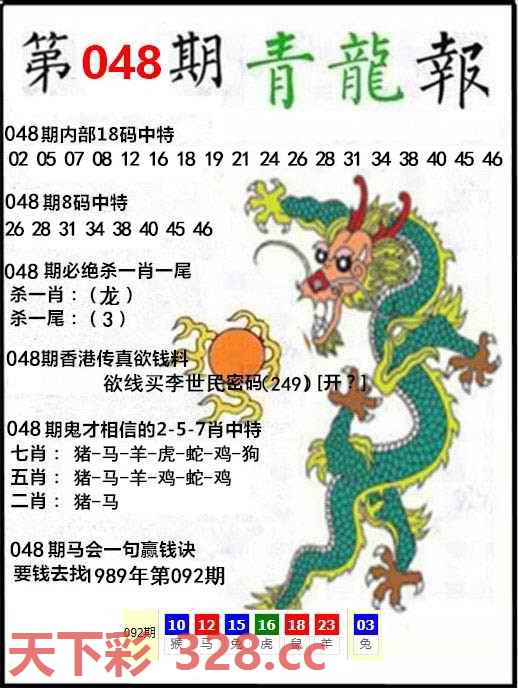 第048期 青龍報
048期内部18码中特
02 05 07 08 12 16 18 19 21 24 26 28 31 34 38 40 45 46
048期8码中特
26 28 31 34 38 40 45 46
048期必绝杀一肖一尾
杀一肖：（龙）
杀一尾：（3）
048期香港传真欲钱料
欲线买李世民密码(249)[开?]
048期鬼才相信的2-5-7肖中特
七肖： 猪-马-羊-虎-蛇-鸡-狗
五肖： 猪-马-羊-鸡-蛇-鸡
二肖： 猪-马
048期马会一句赢钱诀
要钱去找1989年第092期
092期 10 12 15 16 18 23 03
猴 马 兔 虎 鼠 羊 兔
天下彩 328.cc